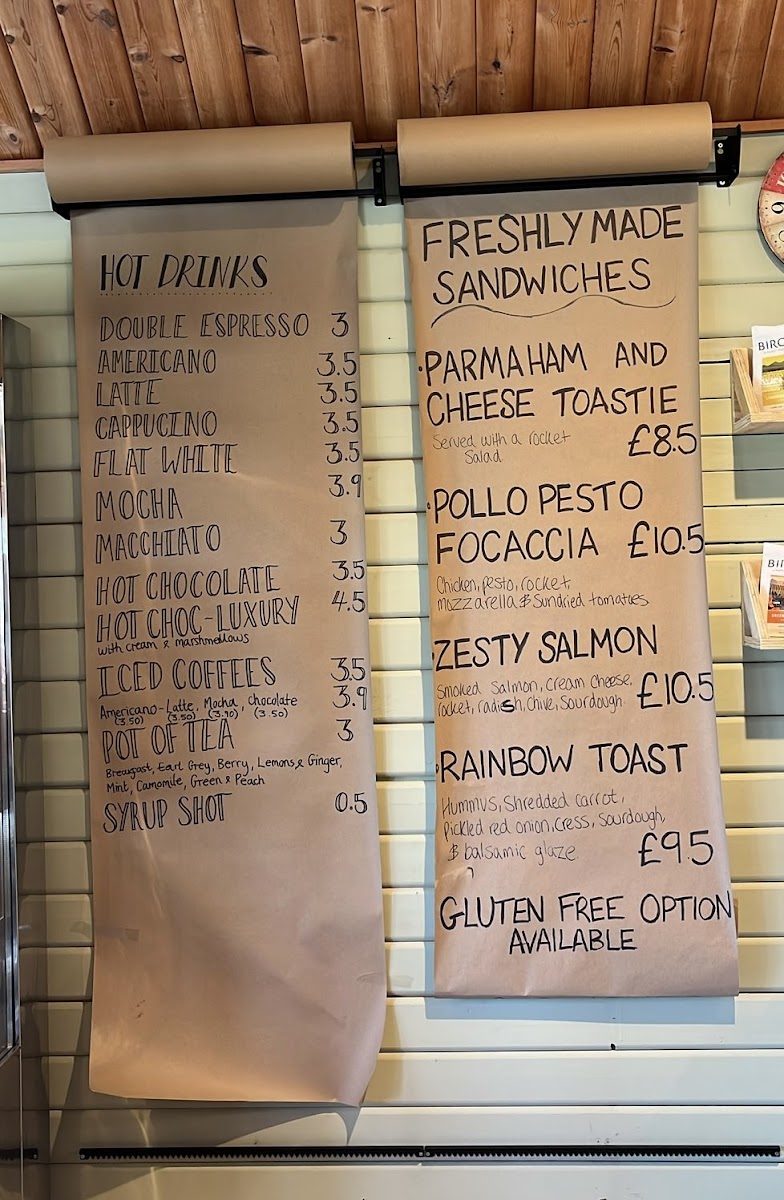 HOT DRINKS
DOUBLE ESPRESSO 3
AMERICANO 3.5
LATTE 3.5
CAPPUCINO 3.5
FLAT WHITE 3.5
MOCHA 3.9
MACCHIATO 3
HOT CHOCOLATE 3.5
HOT CHOC-LUXURY 4.5
with cream & marshmellows
ICED COFFEES 3.5
3.9
Americano-Latte, Mocha, Chocolate
(3.50) (3.50) (3.90) (3.50)
POT OF TEA 3
Breakfast, Earl Grey, Berry, Lemons & Ginger,
Mint, Camomile, Green & Peach
SYRUP SHOT 0.5
FRESHLY MADE
SANDWICHES
·PARMA HAM AND
CHEESE TOASTIE
Served with a rocket
Salad £8.5
·POLLO PESTO
FOCACCIA £10.5
Chicken, pesto, rocket,
mozzarella & Sundried tomatoes
·ZESTY SALMON
Smoked Salmon, cream cheese,
rocket, radish, chive, Sourdough £10.5
·RAINBOW TOAST
Hummus, Shredded carrot,
Pickled red onion, cress, Sourdough,
& balsamic glaze £9.5
GLUTEN FREE OPTION
AVAILABLE